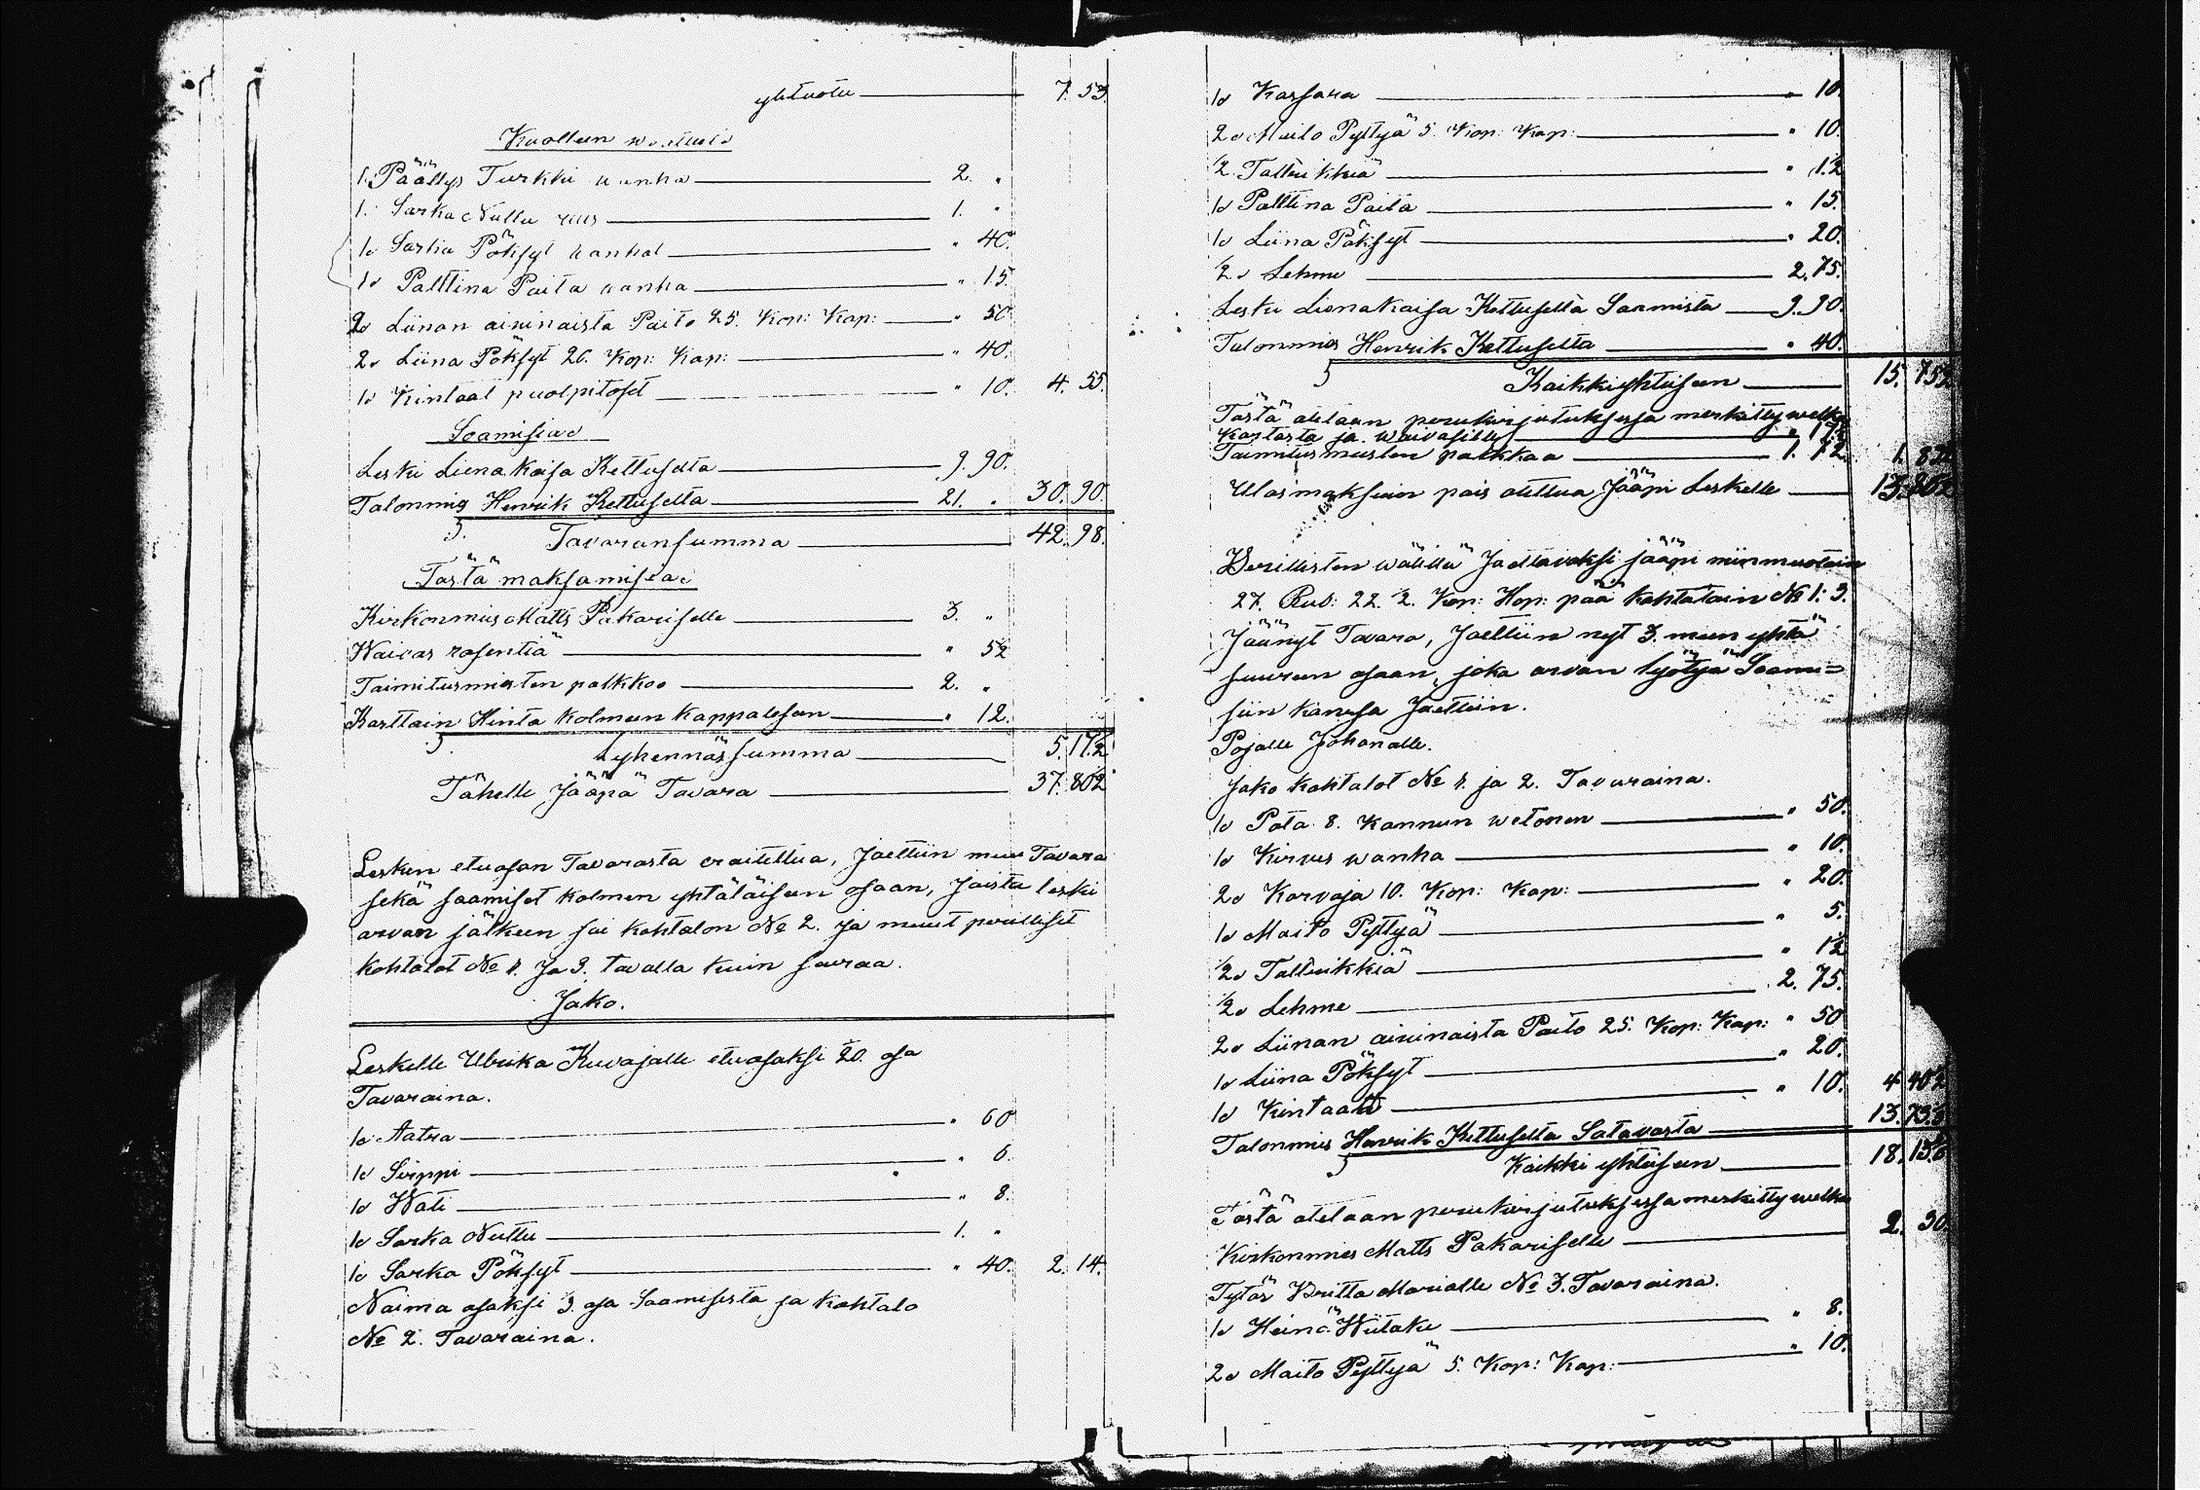 yhtuotu 7. 53.
Kuolleen waatteid
1. Päällys Turkki wanha 2. "
1. Sarka Nuttu uus 1. "
1d Sarka Pöksyt wanhat " 40.
1d Palttina Paita wanha " 15.
2d Liinan aivinaista Paito 25. Kop: Kap: " 50
2d Liina Pöksyt 20. Kop: Kap: " 40.
1d Kintaat puolpitoset " 10. 4. 55.
Saamisiad
Leski Liena Kaisa Kettuselta 9. 90.
Talonmies Henrik Kettuselta 21. " 30. 90.
Tavaransumma 42. 98.
Tästä maksamisia:
Kirkonmies Matts Pakariselle 3. "
Waivas rosentia " 5½
Toimitusmiesten palkkoo 2. "
Karttain Hinta Kolmeen Kappaleseen " 12.
Lyhennässumma 5. 17½
Tähelle Jääpä Tavara 37. 80½
Lesken etuosan Tavarasta eroitettua, Jaettiin muu Tavara
sekä saamiset kolmen yhtäläiseen osaan, Joista leski
arvan jälkeen sai kohtalon No 2. ja muut perilliset
kohtalot No 1. Ja 3. tavalla kuin seuraa.
Jako.
Leskelle Ulrika Kuvajalle etuosaksi 20. osa
Tavaraina.
1d Aatra " 60
1d Sirppi " 6.
1d Wati " 8.
1d Sarka Nuttu 1. "
1d Sarka Pöksyt " 40. 2. 14.
Naima osaksi ⅓ osa Saamisista ja Kohtalo
No 2. Tavaraina.
1d Kassara " 10.
2d Maito Pyttyä 5. Kop: Kap: " 10.
½. Talluikkia " 1.½
1d Palttina Paita " 15.
1d Liina Pöksyt " 20.
½d Lehme 2. 75.
Leski Liena Kaisa Kettuselta Saamista 9. 90.
Talonmies Henrik Kettuselta " 40.
Kaikki yhteiseen 15. 75½
Tästä otetaan perukirjutuksessa merkitty welka
Kartasta ja waivasille " 17½
Toimitusmiesten palkkaa 1.
Ulosmaksuin pois otettua Jääpi Leskelle 13. 80½
Perillisten wälillä Jaettavaksi jääpi niinmuotoin
27. Rub: 22.½. Kop: Hop: pää kohtaloin No 1: 3.
Jäänyt Tavara, Jaettiin nyt 3. meen yhtä
suureen osaan, joka arvan lyötyä Saami=
siin kanssa Jaettiin.
Pojalle Johanalle.
Jako kohtalot No 1. ja 2. Tavaraina.
1d Pata 8. Kannun wetonen " 50.
1d Kirves wanha " 10.
2d Karvaja 10. Kop: Kap: " 20.
1d Maito Pyttyä " 5.
½d Talluikkia " 1½
½d Lehme 2. 75.
2d Liinan aivinaista Paito 25. Kop: Kap: " 50
1d Liina Pöksyt " 20.
1d Kintaat " 10. 4. 40½
Talonmies Henrik Kettuselta Satavasta 13. 73.
Kaikki yhteiseen 18. 13.
Tästä otetaan perukirjutuksessa merkitty welka
Kirkonmies Matts Pakariselle 2. 30
Tytär Britta Marialle No 3. Tavaraina.
1d Heinä Wiitake " 8.
2d Maito Pyttyä 5. Kop: Kap: " 10.